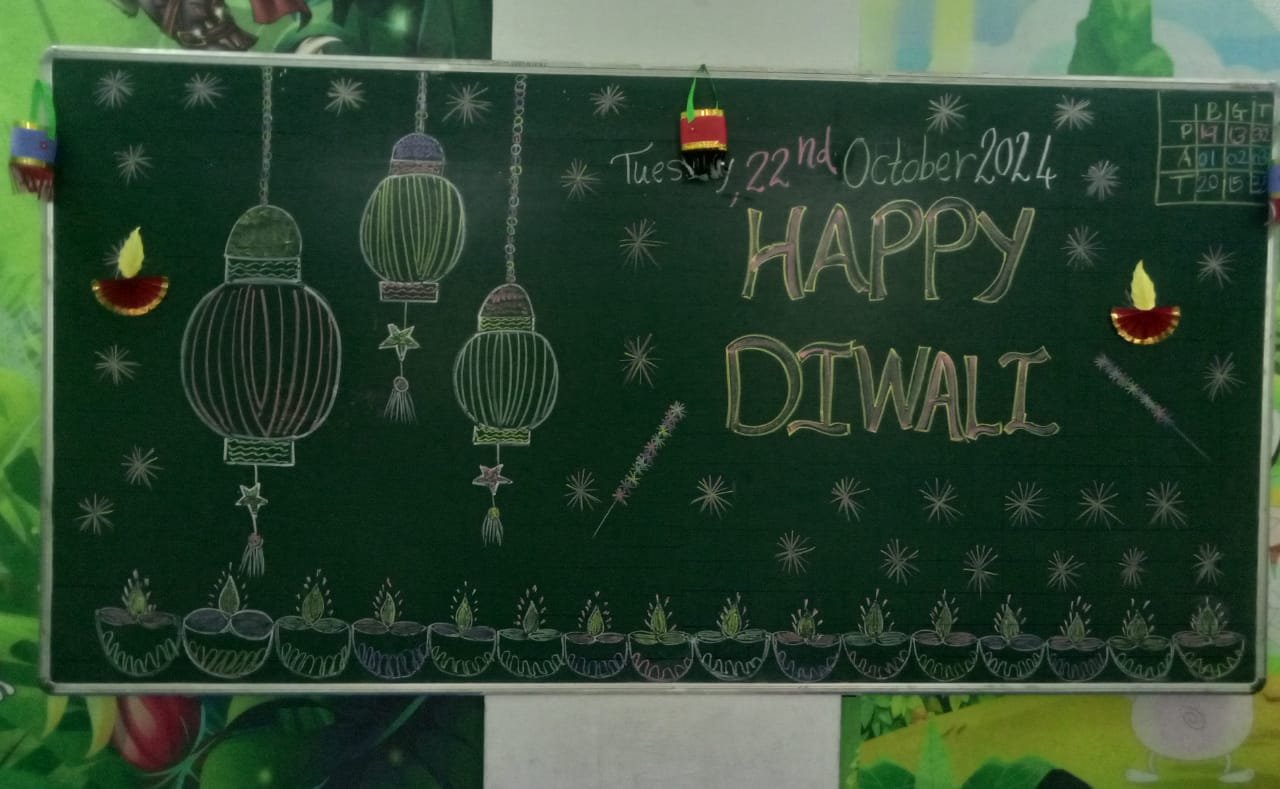 Tuesday, 22nd October 2024
HAPPY
DIWALI
B G T
P 19 13 32
A 01 02 03
T 20 15